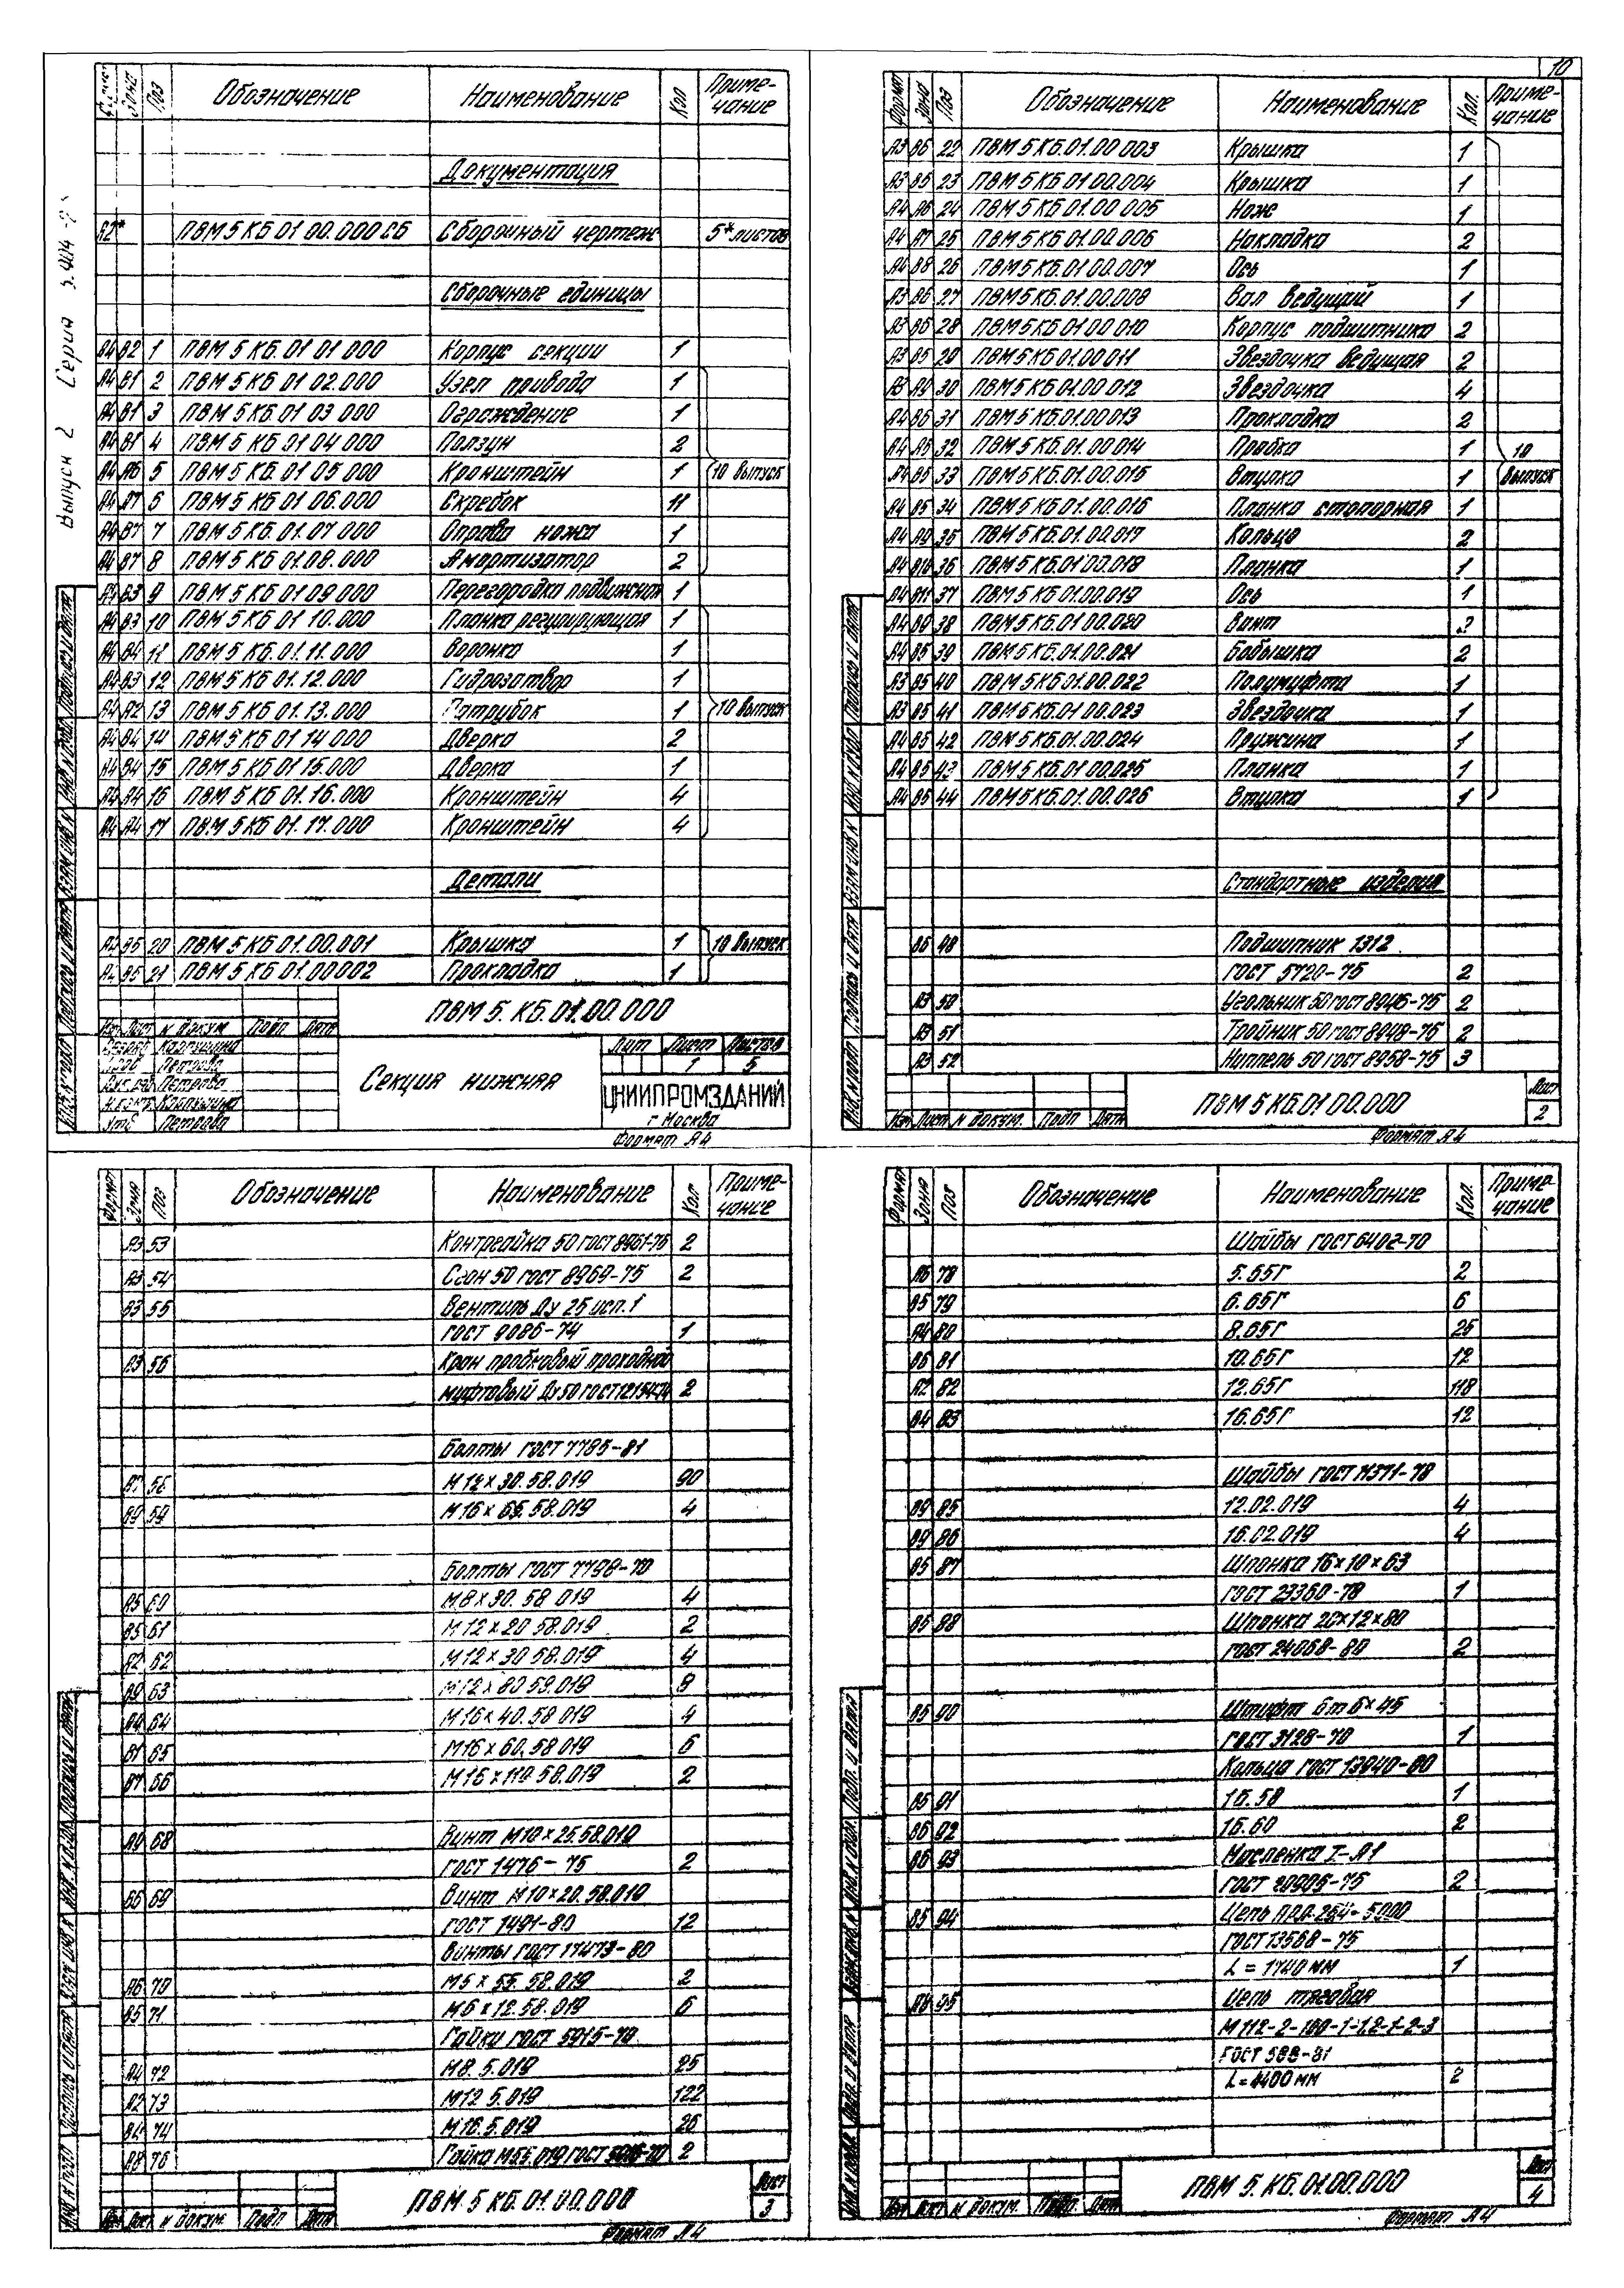 10
Выпуск 2 Серия
Зона Поз Обозначение Наименование Кол Приме-
чание
Документация
А2* ПВМ 5 КБ 01 00.000 СБ Сборочный чертеж 5* листов
Сборочные единицы
А4 В2 1 ПВМ 5 КБ.01 01 000 Корпус секции 1
А4 В1 2 ПВМ 5 КБ 01 02.000 Узел привода 1
А4 В1 3 ПВМ 5 КБ 01 03 000 Ограждение 1
А4 В1 4 ПВМ 5 КБ 01 04 000 Ползун 2
А4 А6 5 ПВМ 5 КБ 01 05 000 Кронштейн 1 10 выпуск
А4 А7 6 ПВМ 5 КБ 01 06.000 Скребок 11
А4 В7 7 ПВМ 5 КБ.01.07.000 Оправа ножа 1
А4 В7 8 ПВМ 5 КБ 01.08.000 Амортизатор 2
А4 В3 9 ПВМ 5 КБ 01 09 000 Перегородка подвижная 1
А4 В3 10 ПВМ 5 КБ 01 10.000 Планка регулирующая 1
А4 В4 11 ПВМ 5 КБ.01.11.000 Воронка 1
А4 В3 12 ПВМ 5 КБ 01.12.000 Гидрозатвор 1
А4 А2 13 ПВМ 5 КБ 01.13.000 Патрубок 1 10 выпуск
А4 В4 14 ПВМ 5 КБ 01 14 000 Дверка 2
А4 В4 15 ПВМ 5 КБ 01 15.000 Дверка 1
А4 А4 16 ПВМ 5 КБ 01.16.000 Кронштейн 4
А4 А4 17 ПВМ 5 КБ 01.17.000 Кронштейн 4
Детали
А3 В6 20 ПВМ 5 КБ 01.00.001 Крышка 1 10 выпуск
В6 21 ПВМ 5 КБ 01.00 002 Прокладка 1
ПВМ 5.КБ.01.00.000
Изм Лист N докум Подп Дата
Карпушина
Петрова
Петрова
Н.конт Карпушина
Утв Петрова
Секция нижняя
Лит Лист Листов
1 5
ЦНИИПРОМЗДАНИЙ
г Москва
Формат А4
Формат Зона Поз Обозначение Наименование Кол. Приме-
чание
А3 В6 22 ПВМ 5 КБ.01.00 003 Крышка 1
А3 В5 23 ПВМ 5 КБ 01 00.004 Крышка 1
А4 А6 24 ПВМ 5 КБ 01.00 005 Нож 1
А4 А7 25 ПВМ 5 КБ.01.00.006 Накладка 2
А4 В8 26 ПВМ 5 КБ.01 00.007 Ось 1
А3 В6 27 ПВМ 5 КБ.01.00.008 Вал ведущий 1
А3 В6 28 ПВМ 5 КБ 01.00 010 Корпус подшипника 2
А3 В5 29 ПВМ 5 КБ.01.00 011 Звездочка ведущая 2
А3 А9 30 ПВМ 5 КБ 01.00 012 Звездочка 4
А4 В6 31 ПВМ 5 КБ.01.00 013 Прокладка 2
А4 А5 32 ПВМ 5 КБ 01.00 014 Пробка 1 10
А4 В5 33 ПВМ 5 КБ.01.00.015 Втулка 1 выпуск
А4 В5 34 ПВМ 5 КБ.01.00.016 Планка стопорная 1
А4 А9 35 ПВМ 5 КБ.01.00.017 Кольцо 2
А4 В10 36 ПВМ 5 КБ.01.00.018 Планка 1
А4 В11 37 ПВМ 5 КБ.01.00.019 Ось 1
А4 В9 38 ПВМ 5 КБ.01.00.020 Винт
А4 В5 39 ПВМ 5 КБ.01.00.021 Бобышка 2
А3 В5 40 ПВМ 5 КБ 01.00.022 Полумуфта 1
А3 В5 41 ПВМ 5 КБ.01.00.023 Звездочка 1
А4 В5 42 ПВМ 5 КБ.01.00.024 Пружина 1
А4 В5 43 ПВМ 5 КБ.01 00.025 Планка 1
А4 В5 44 ПВМ 5 КБ.01.00.026 Втулка 1
Стандартные изделия
В6 48 Подшипник 1312
ГОСТ 5720-75 2
А3 50 Угольник 50 ГОСТ 8946-75 2
А3 51 Тройник 50 ГОСТ 8948-75 2
А3 52 Ниппель 50 ГОСТ 8958-75 3
ПВМ 5 КБ.01 00.000
Лист
2
Изм Лист N докум. Подп Дата
Формат А4
Формат Зона Поз Обозначение Наименование Кол Приме-
чание
А3 53 Контргайка 50 ГОСТ 8961-75 2
А3 54 Сгон 50 ГОСТ 8969-75 2
В3 55 Вентиль Ду 25 исп.1
ГОСТ 9086-74 1
А3 56 Кран пробковый проходной
муфтовый Ду 50 2
Болты ГОСТ 7785-81
М12×30.58.019 90
59 М16×65.58.019 4
Болты ГОСТ 7798-70
А5 60 М8×30.58 019 4
В5 61 М12×20 58.019 2
А2 62 М12×30 58.019 4
В9 63 М12×80 58.019 8
А4 64 М16×40.58 019 4
В1 65 М16×60.58 019 6
В7 66 М16×110 58.019 2
А9 68 Винт М10×25.58.019
ГОСТ 1476-75 2
В6 69 Винт М10×20.58.019
ГОСТ 1491-80 12
Винты ГОСТ 17473-80
А6 70 М5×55.58.019 2
В5 71 М6×12.58.019 6
Гайки ГОСТ 5915-70
А4 72 М8.5.019 25
А2 73 М12 5.019 122
74 М16.5.019 26
А8 76 Гайка 2
ПВМ.5 КБ.01.00.000
Лист
3
Изм Лист N докум. Подп Дата
Формат А4
Формат Зона Поз Обозначение Наименование Кол. Приме-
чание
Шайбы ГОСТ 6402-70
А6 78 5.65Г 2
В5 79 6.65Г 6
А4 80 8.65Г 25
В6 81 10.65Г 12
А2 82 12.65Г 118
В4 83 16.65Г 12
Шайбы ГОСТ 11371-78
В9 85 12.02.019 4
В9 86 16.02.019 4
В5 87 Шпонка 16×10×63
ГОСТ 23360-78 1
В6 88 Шпонка 20×12×80
ГОСТ 24068-80 2
В5 90 Штифт 6т6×45
ГОСТ 3128-70 1
Кольца ГОСТ 13940-80
В5 91 1б.58 1
В6 92 1б.60 2
В6 93 Масленка I-А1
ГОСТ 20905-75 2
В5 94 Цепь
ГОСТ 13568-75
L = 1740 мм 1
95 Цепь тяговая
М112-2-100-1-1,2-1-2-3
ГОСТ 588-81
L=4400 мм 2
ПВМ 5.КБ.01.00.000
Лист
4
Изм Лист N докум. Подп Дата
Формат А4